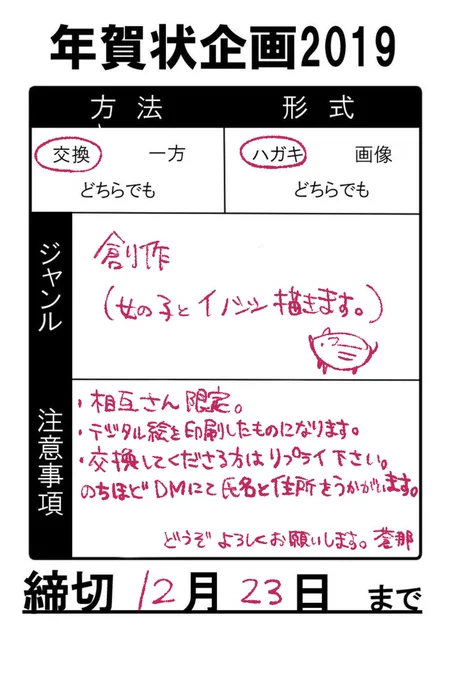 年賀状企画2019
方法 形式
交換 一方 ハガキ 画像
どちらでも どちらでも
ジャンル
創作
(女の子とイノシシ描きます。)
注意事項
・相互さん限定。
・デジタル絵を印刷したものになります。
・交換してくださる方はリプライ下さい。
のちほどDMにて氏名と住所をうかがいます。
どうぞよろしくお願いします。蒼那
締切 12月23日 まで